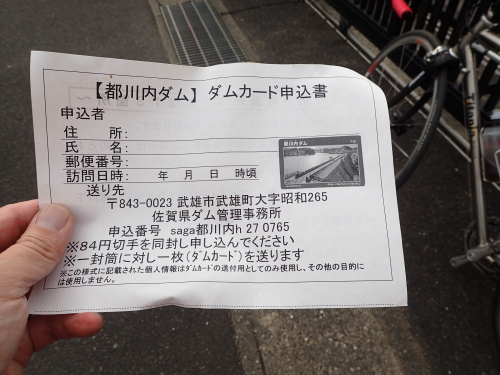 【都川内ダム】 ダムカード申込書
申込者
住　所:
氏　名:
郵便番号:
訪問日時:　年　月　日　時頃
都川内ダム
送り先
〒843-0023 武雄市武雄町大字昭和265
佐賀県ダム管理事務所
申込番号 saga都川内h 27 0765
※84円切手を同封し申し込んでください
※一封筒に対し一枚(ダムカード)を送ります
※この様式に記載された個人情報はダムカードの送付用としてのみ使用し、その他の目的に
は使用しません。